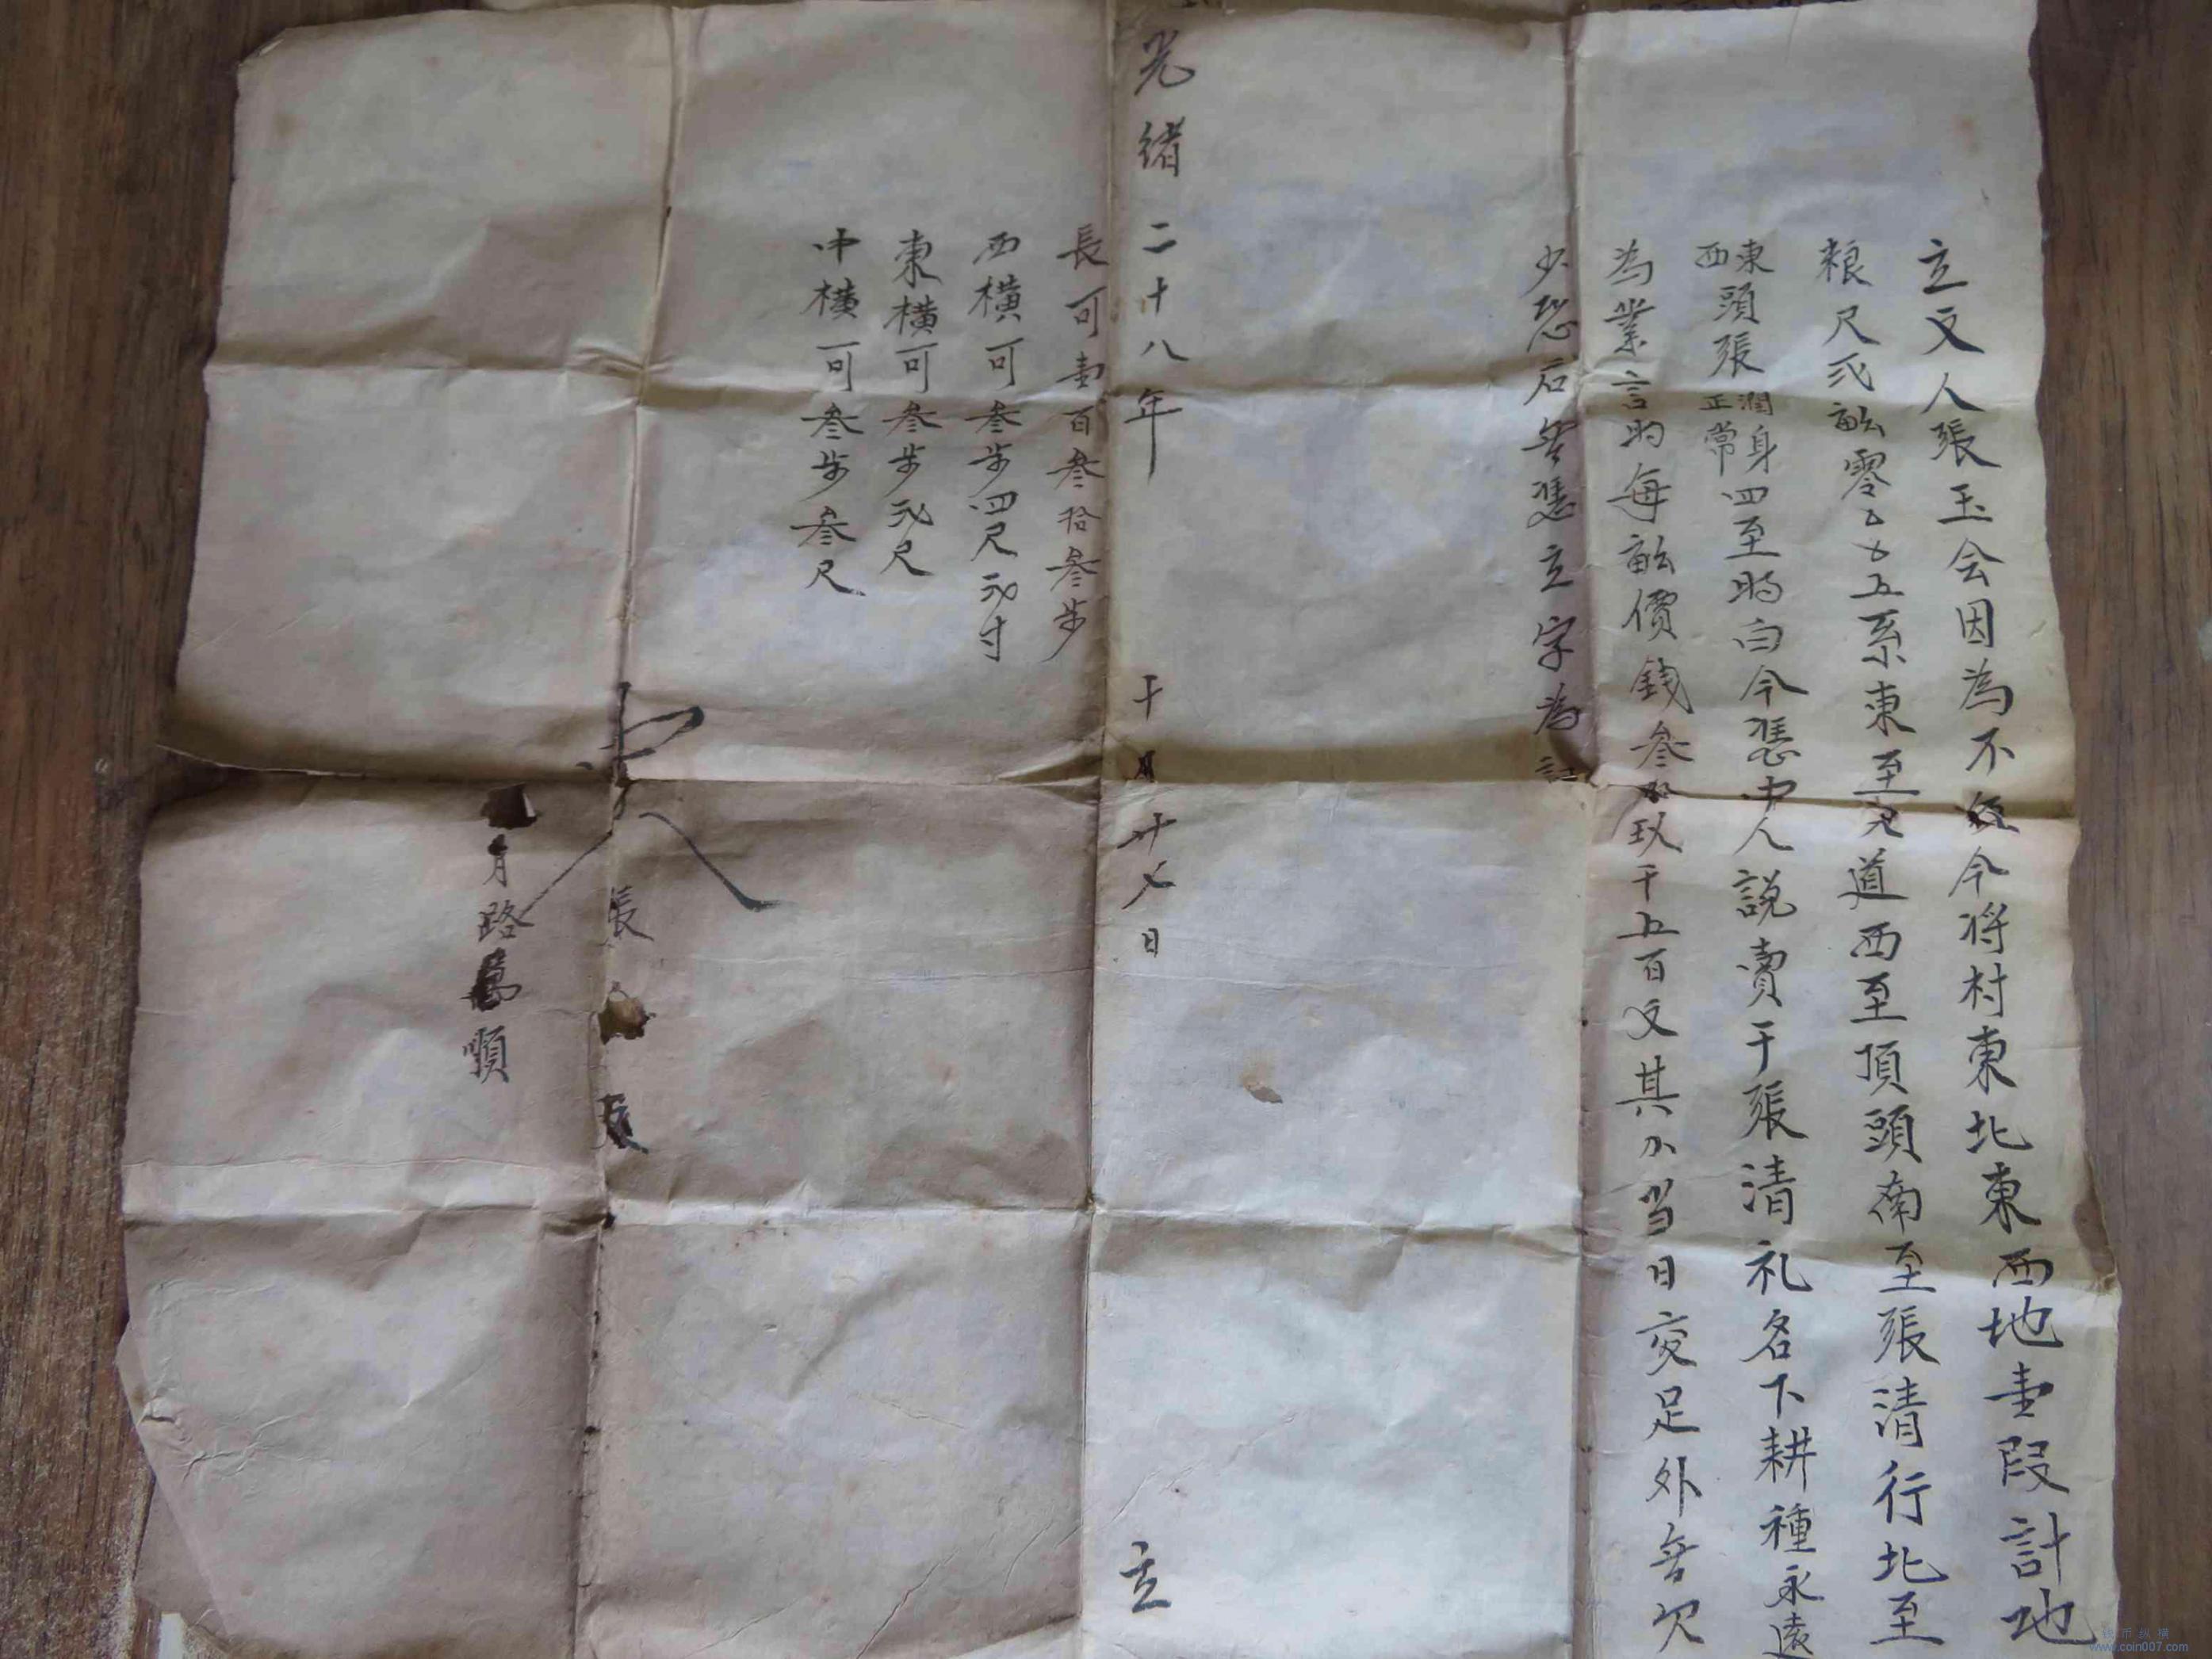 立文人張玉会因為不便今将村東北東西地壹段計地
粮尺弍畝零五系東至道西至頂頭南至張清行北至
東西頭張潤身正常四至明白今憑中人説賣于張清礼名下耕種永遠
為業言明每畝價錢叁拾玖千五百文其小当日交足外無欠
少恐后無憑立字為証
光緒二十八年十月廿七日立
長可壹百叁拾叁步
西横可叁步四尺弍寸
東横可叁步弍尺
中横可叁步叁尺
中人
張
路萬順
钱币纵横
www.coin007.com